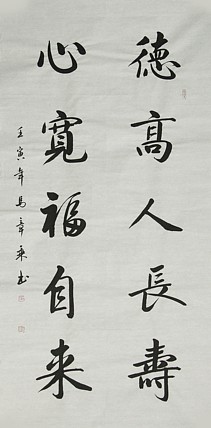 德高人長壽
心寬福自来
壬寅年馬章乘书